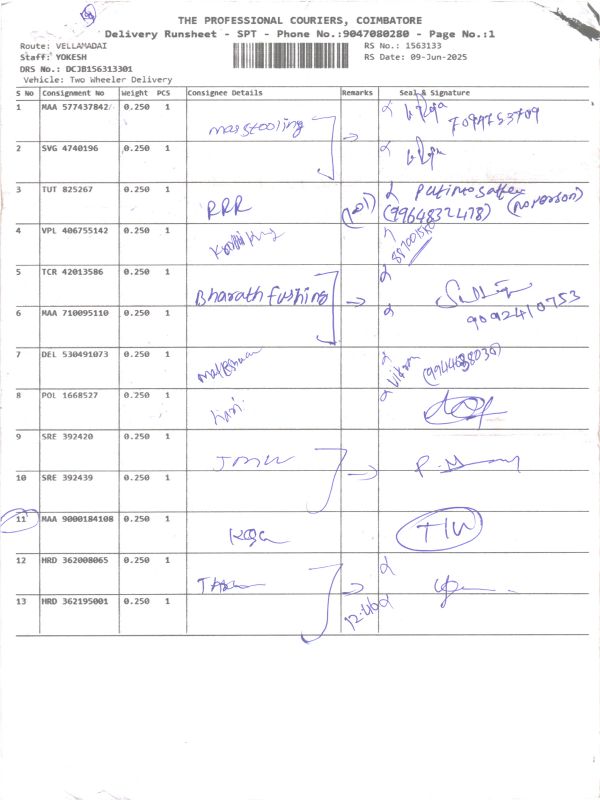 THE PROFESSIONAL COURIERS, COIMBATORE
Delivery Runsheet - SPT - Phone No.:9047080280 - Page No.:1
Route: VELLAMADAI
RS No.: 1563133
Staff: YOKESH
RS Date: 09-Jun-2025
DRS No.: DCJB156313301
Vehicle: Two Wheeler Delivery
S No Consignment No Weight PCS Consignee Details Remarks Seal & Signature
1 MAA 577437842 0.250 1
7094753709
2 SVG 4740196 0.250 1
3 TUT 825267 0.250 1 RRR
(9964832478) (no person)
4 VPL 406755142 0.250 1
5 TCR 42013586 0.250 1
Bharath fushing
6 MAA 710095110 0.250 1 9092410753
7 DEL 530491073 0.250 1
8 POL 1668527 0.250 1 hari
9 SRE 392420 0.250 1
10 SRE 392439 0.250 1
11 MAA 9000184108 0.250 1
12 HRD 362008065 0.250 1
13 HRD 362195001 0.250 1 12.46